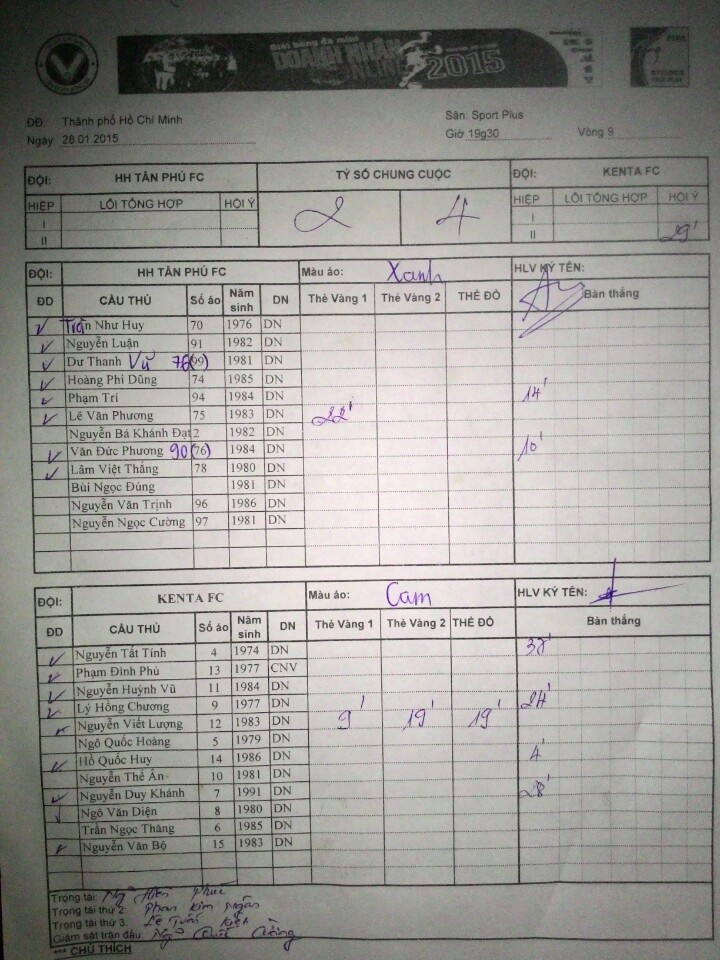 Giải bóng đá mini
DOANH NHÂN
ONLINE 2015
ĐĐ: Thành phố Hồ Chí Minh Sân: Sport Plus
Ngày 28.01.2015 Giờ 19g30 Vòng 9
ĐỘI: HH TÂN PHÚ FC TỶ SỐ CHUNG CUỘC ĐỘI: KENTA FC
HIỆP LỖI TỔNG HỢP HỘI Ý 2 4 HIỆP LỖI TỔNG HỢP HỘI Ý
I I
II II 29'
ĐỘI: HH TÂN PHÚ FC Màu áo: Xanh HLV KÝ TÊN:
ĐD CẦU THỦ Số áo Năm sinh DN Thẻ Vàng 1 Thẻ Vàng 2 THẺ ĐỎ Bàn thắng
Trần Như Huy 70 1976 DN
Nguyễn Luận 91 1982 DN
Dư Thanh Vũ 76 (99) 1981 DN
Hoàng Phi Dũng 74 1985 DN
Phạm Trí 94 1984 DN 14'
Lê Văn Phương 75 1983 DN 22'
Nguyễn Bá Khánh Đạt 2 1982 DN
Văn Đức Phương 90 (76) 1984 DN 10'
Lâm Việt Thắng 78 1980 DN
Bùi Ngọc Đúng 1981 DN
Nguyễn Văn Trịnh 96 1986 DN
Nguyễn Ngọc Cường 97 1981 DN
ĐỘI: KENTA FC Màu áo: Cam HLV KÝ TÊN:
ĐD CẦU THỦ Số áo Năm sinh DN Thẻ Vàng 1 Thẻ Vàng 2 THẺ ĐỎ Bàn thắng
Nguyễn Tất Tính 4 1974 DN
Phạm Đình Phú 13 1977 CNV
Nguyễn Huỳnh Vũ 11 1984 DN
Lý Hồng Chương 9 1977 DN 24'
Nguyễn Viết Lượng 12 1983 DN 9' 19' 19'
Ngô Quốc Hoàng 5 1979 DN
Hồ Quốc Huy 14 1986 DN 4'
Nguyễn Thế Ân 10 1981 DN
Nguyễn Duy Khánh 7 1991 DN 28'
Ngô Văn Diện 8 1980 DN
Trần Ngọc Thăng 6 1985 DN
Nguyễn Văn Bộ 15 1983 DN
Trọng tài:
Trọng tài thứ 2: Phan Kim
Trọng tài thứ 3: Lê Tuấn Kiệt
Giám sát trận đấu: Cường
*** CHÚ THÍCH